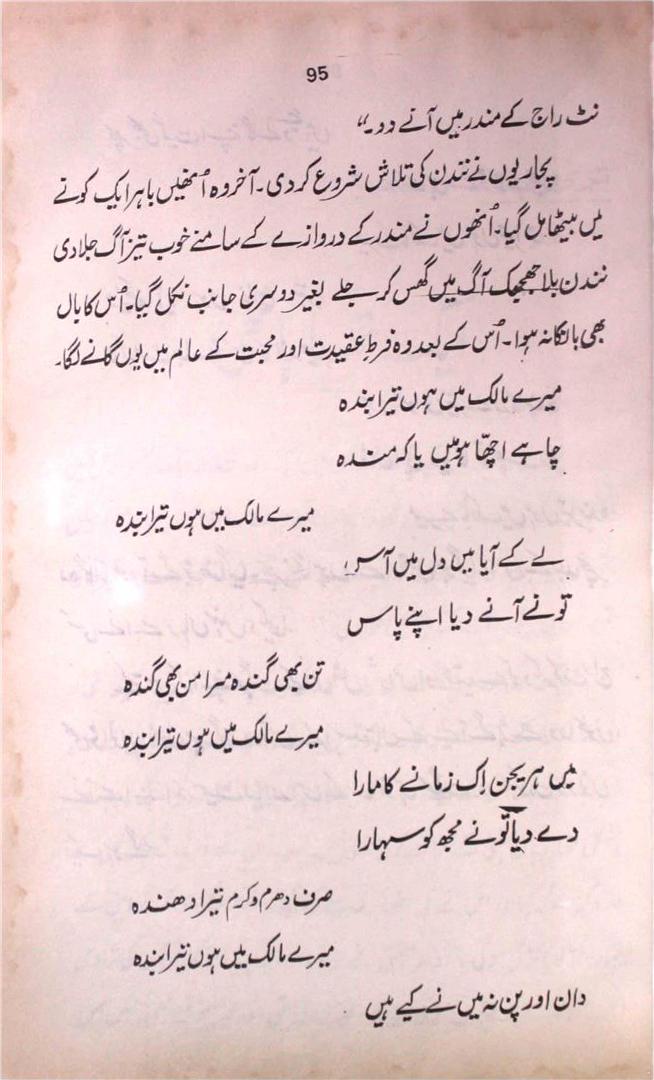 95
نٹ راج کے مندر میں آنے دو۔“
پجاریوں نے نندن کی تلاش شروع کر دی۔ آخر وہ اُنھیں باہر ایک کونے
میں بیٹھا مل گیا۔ اُنھوں نے مندر کے دروازے کے سامنے خوب تیز آگ جلا دی
نندن بلا جھجھک آگ میں گھس کر جلے بغیر دوسری جانب نکل گیا۔ اُس کا بال
بھی بانکا نہ ہوا۔ اُس کے بعد وہ فرطِ عقیدت اور محبت کے عالم میں یوں گانے لگا۔
میرے مالک میں ہوں تیرا بندہ
چاہے اچھّا ہوں میں یا کہ مندہ
میرے مالک میں ہوں تیرا بندہ
لے کے آیا میں دل میں آس
تو نے آنے دیا اپنے پاس
تن بھی گندہ مرا من بھی گندہ
میرے مالک میں ہوں تیرا بندہ
میں ہریجن اِک زمانے کا مارا
دے دیا تُو نے مجھ کو سہارا
صرف دھرم و کرم تیرا دھندہ
میرے مالک میں ہوں تیرا بندہ
دان اور پن نہ میں نے کیے ہیں